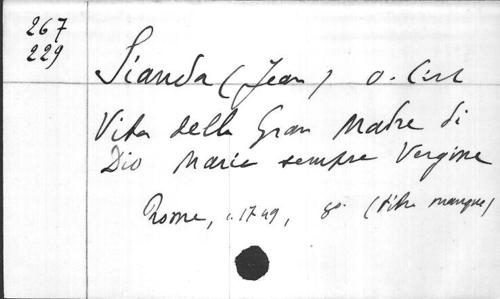 267
229
Sianda (Jean) o. Cist
Vita della Gran Madre di
Dio Maria sempre Vergine
Rome, c. 1749, 8o. (titre manque)